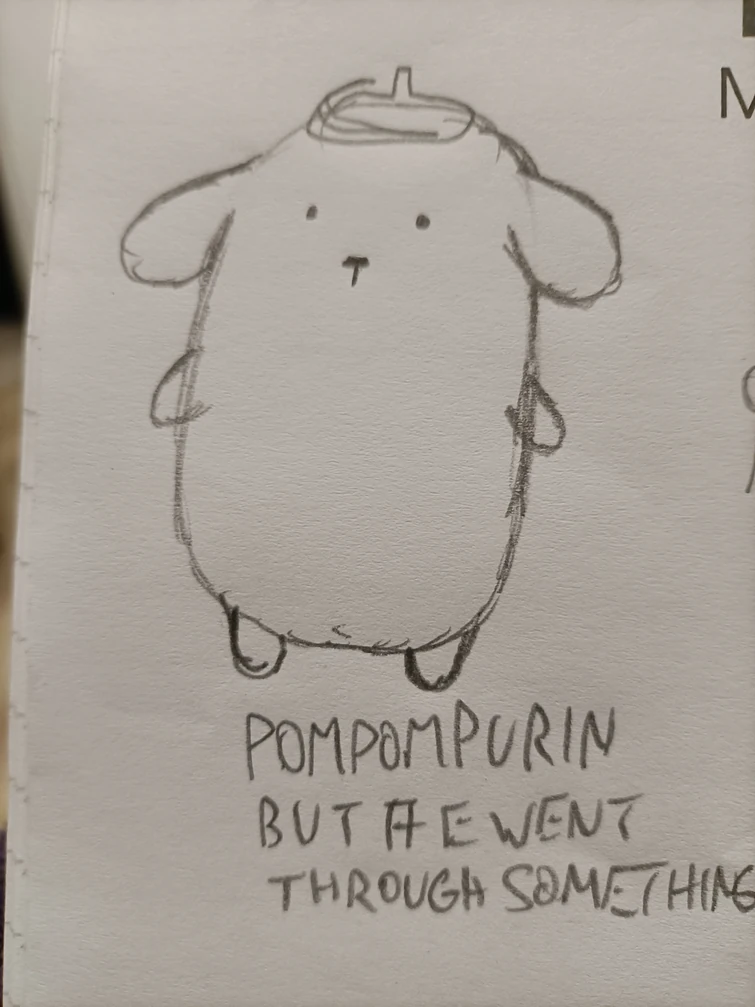 M
POMPOMPURIN
BUT HE WENT
THROUGH SOMETHING